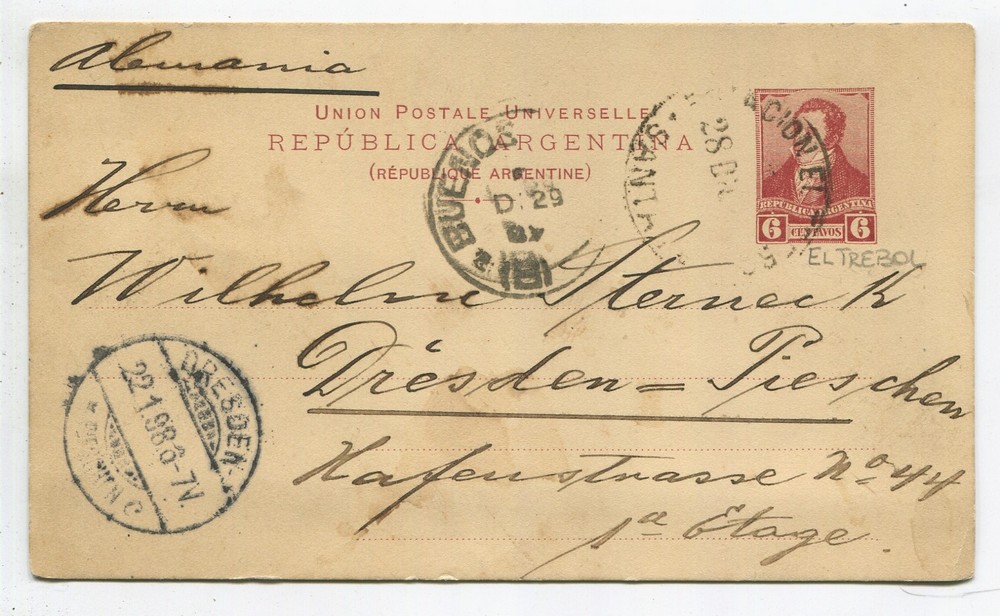 Alemania
UNION POSTALE UNIVERSELLE
REPÚBLICA ARGENTINA
(RÉPUBLIQUE ARGENTINE)
REPÚBLICA ARGENTINA
6 CENTAVOS 6
ACION EL
28 D
SANTA
EL TREBOL
BUENOS
D 29
Herrn
Wilhelm Sterneck
Dresden = Pieschen
Hafenstrasse No 44
1te Etage.
DRESDEN-
22.1.98 6-7V.